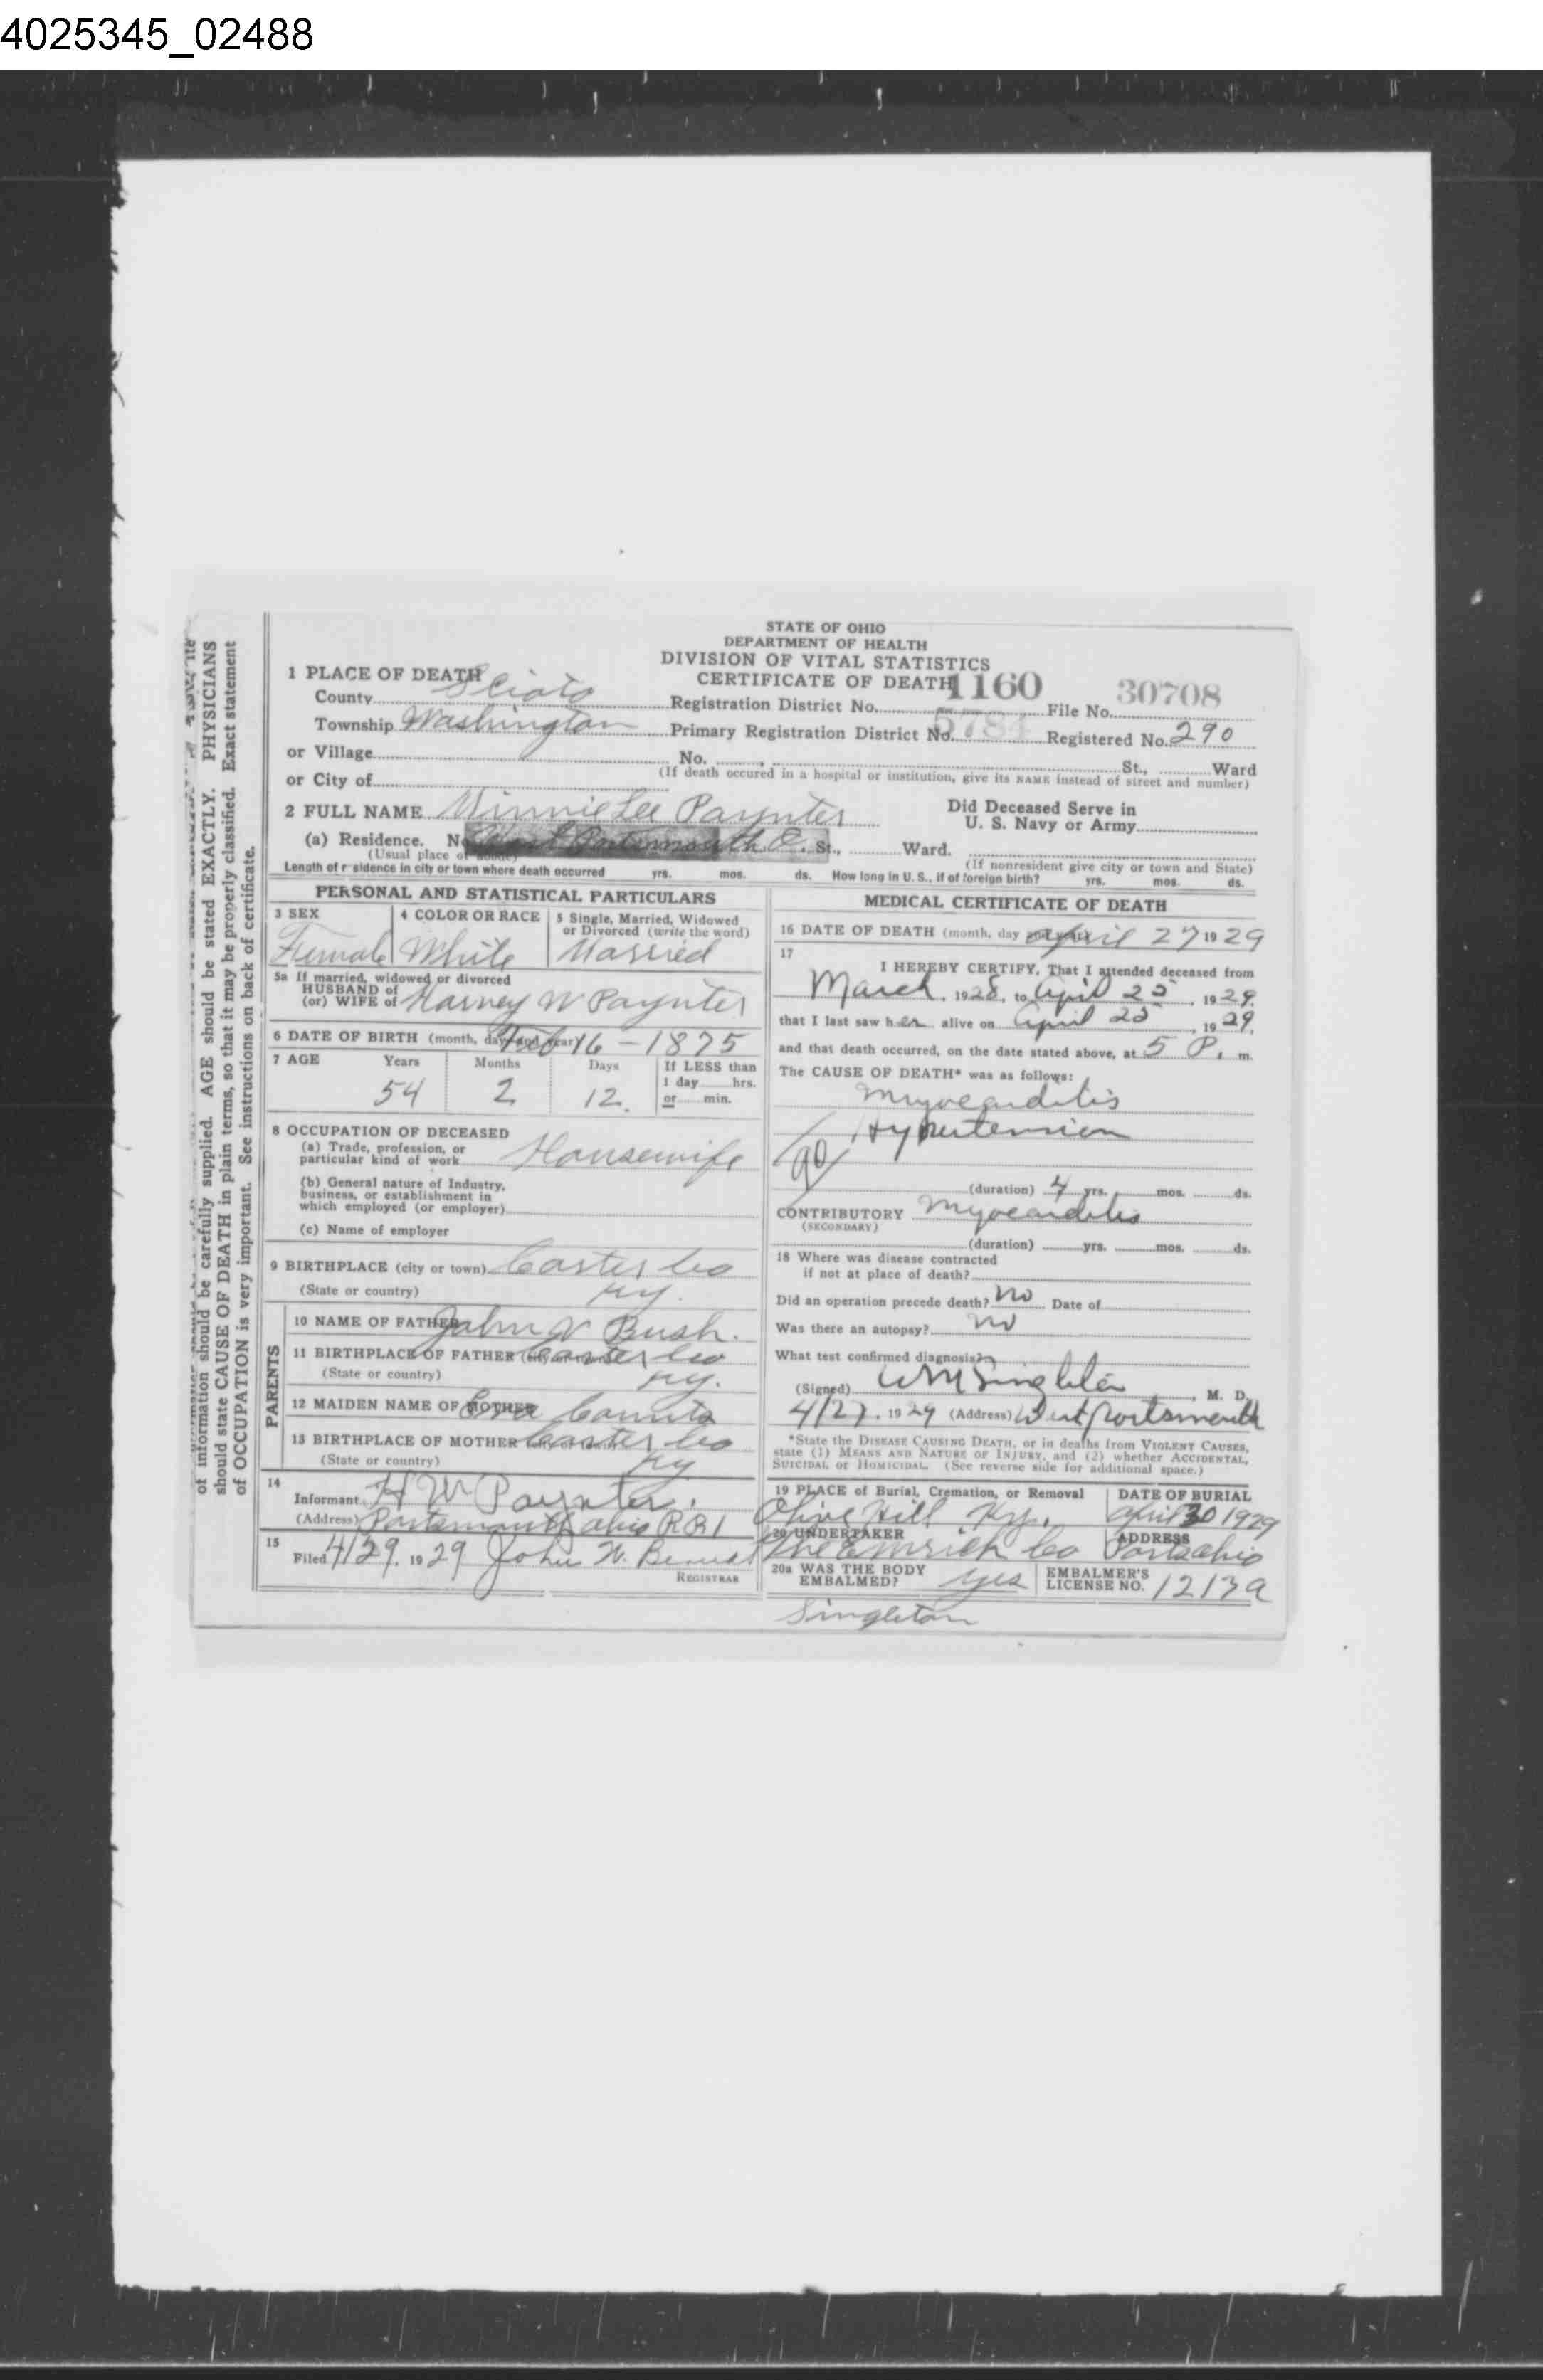 4025345_02488
STATE OF OHIO
DEPARTMENT OF HEALTH
DIVISION OF VITAL STATISTICS
CERTIFICATE OF DEATH
1160 30708
1 PLACE OF DEATH
County Scioto Registration District No. File No.
Township Washington Primary Registration District No. 5784 Registered No. 290
or Village No. St., Ward
or City of (If death occured in a hospital or institution, give its NAME instead of street and number)
2 FULL NAME Minnie Lee Paynter Did Deceased Serve in U. S. Navy or Army
(a) Residence. No. West Portsmouth O. St., Ward.
(Usual place of abode) (If nonresident give city or town and State)
Length of residence in city or town where death occurred yrs. mos. ds. How long in U. S., if of foreign birth? yrs. mos. ds.
PERSONAL AND STATISTICAL PARTICULARS
3 SEX 4 COLOR OR RACE 5 Single, Married, Widowed or Divorced (write the word)
Female White Married
5a If married, widowed or divorced
HUSBAND of
(or) WIFE of Harvey W Paynter
6 DATE OF BIRTH (month, day and year) Feb 16 - 1875
7 AGE Years Months Days If LESS than
1 day hrs.
or min.
54 2 12
8 OCCUPATION OF DECEASED
(a) Trade, profession, or
particular kind of work Housewife
(b) General nature of Industry,
business, or establishment in
which employed (or employer)
(c) Name of employer
9 BIRTHPLACE (city or town) Carter Co
(State or country) Ky.
PARENTS
10 NAME OF FATHER John Bush.
11 BIRTHPLACE OF FATHER Carter Co
(State or country) Ky.
12 MAIDEN NAME OF MOTHER
13 BIRTHPLACE OF MOTHER Carter Co
(State or country) Ky
14
Informant H W Paynter.
(Address) Portsmouth Ohio R R 1
15
Filed 4/29, 1929 John W.
REGISTRAR
MEDICAL CERTIFICATE OF DEATH
16 DATE OF DEATH (month, day and year) April 27 1929
17
I HEREBY CERTIFY, That I attended deceased from
March, 1928, to April 25, 1929.
that I last saw her alive on April 25, 1929,
and that death occurred, on the date stated above, at 5 P. m.
The CAUSE OF DEATH* was as follows:
Myocarditis
Hypertension
90
(duration) 4 yrs. mos. ds.
CONTRIBUTORY Myocarditis
(SECONDARY)
(duration) yrs. mos. ds.
18 Where was disease contracted
if not at place of death?
Did an operation precede death? No Date of
Was there an autopsy? No
What test confirmed diagnosis?
(Signed) W M Singleton, M. D.
4/27, 1929 (Address) West Portsmouth
*State the DISEASE CAUSING DEATH, or in deaths from VIOLENT CAUSES,
state (1) MEANS AND NATURE OF INJURY, and (2) whether ACCIDENTAL,
SUICIDAL or HOMICIDAL. (See reverse side for additional space.)
19 PLACE of Burial, Cremation, or Removal DATE OF BURIAL
Olive Hill Ky. April 30 1929
20 UNDERTAKER ADDRESS
The Emrich Co Ports Ohio
20a WAS THE BODY
EMBALMED? Yes EMBALMER'S
LICENSE NO. 1213a
Singleton
of information should be carefully supplied. AGE should be stated EXACTLY. PHYSICIANS
should state CAUSE OF DEATH in plain terms, so that it may be properly classified. Exact statement
of OCCUPATION is very important. See instructions on back of certificate.